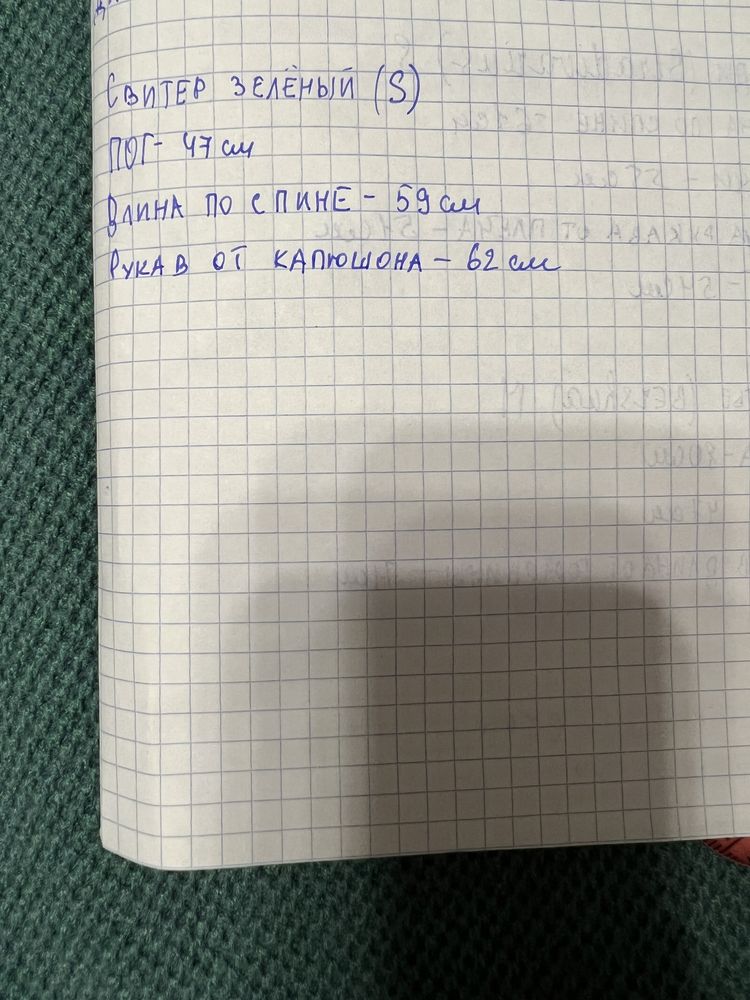 СВИТЕР ЗЕЛЁНЫЙ (S)
ПОГ- 47 см
ДЛИНА ПО СПИНЕ - 59 см
РУКАВ ОТ КАПЮШОНА - 62 см